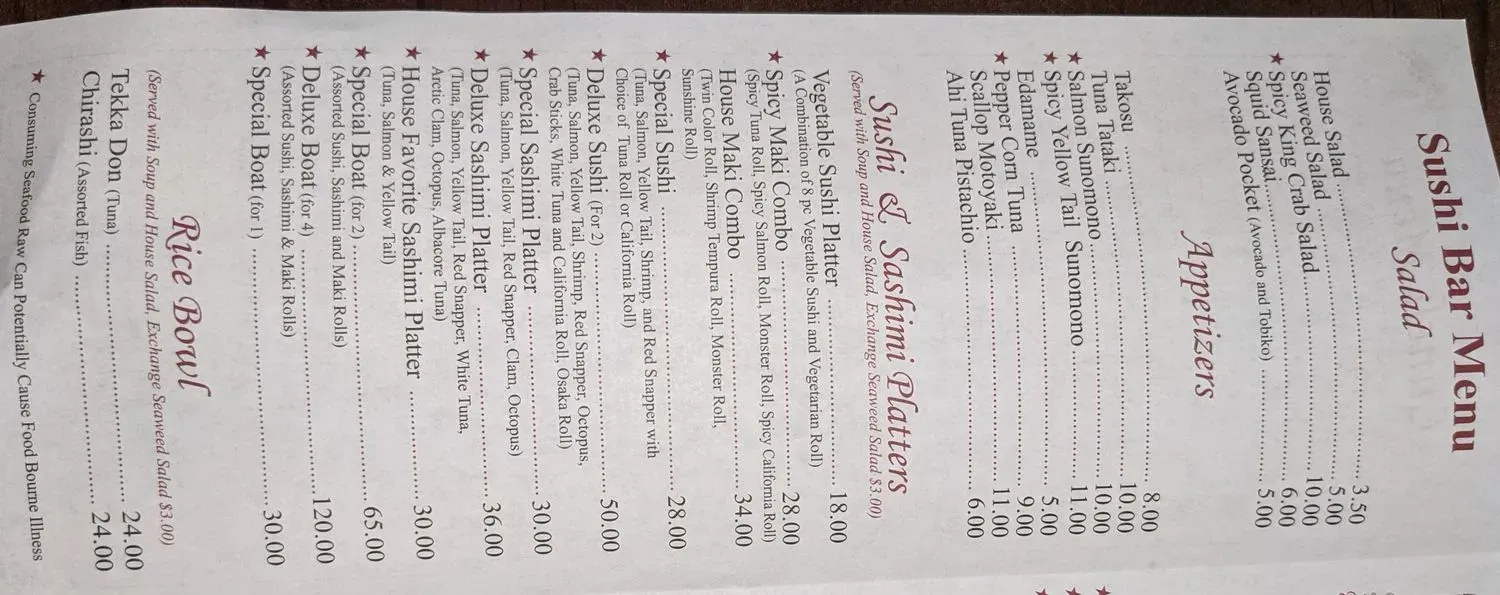 Sushi Bar Menu
Salad
House Salad ........ 3.50
Seaweed Salad ........ 5.00
★ Spicy King Crab Salad ........ 10.00
Squid Sansai ........ 6.00
Avocado Pocket (Avocado and Tobiko) ........ 5.00
Appetizers
Takosu ........ 8.00
Tuna Tataki ........ 10.00
★ Salmon Sunomono ........ 10.00
★ Spicy Yellow Tail Sunomono ........ 11.00
Edamame ........ 5.00
★ Pepper Corn Tuna ........ 9.00
Scallop Motoyaki ........ 11.00
Ahi Tuna Pistachio ........ 6.00
Sushi & Sashimi Platters
(Served with Soup and House Salad, Exchange Seaweed Salad $3.00)
Vegetable Sushi Platter ........ 18.00
(A Combination of 8 pc Vegetable Sushi and Vegetarian Roll)
★ Spicy Maki Combo ........ 28.00
(Spicy Tuna Roll, Spicy Salmon Roll, Monster Roll, Spicy California Roll)
House Maki Combo ........ 34.00
(Twin Color Roll, Shrimp Tempura Roll, Monster Roll,
Sunshine Roll)
★ Special Sushi ........ 28.00
(Tuna, Salmon, Yellow Tail, Shrimp, and Red Snapper with
Choice of Tuna Roll or California Roll)
★ Deluxe Sushi (For 2) ........ 50.00
(Tuna, Salmon, Yellow Tail, Shrimp, Red Snapper, Octopus,
Crab Sticks, White Tuna and California Roll, Osaka Roll)
★ Special Sashimi Platter ........ 30.00
(Tuna, Salmon, Yellow Tail, Red Snapper, Clam, Octopus)
★ Deluxe Sashimi Platter ........ 36.00
(Tuna, Salmon, Yellow Tail, Red Snapper, White Tuna,
Arctic Clam, Octopus, Albacore Tuna)
★ House Favorite Sashimi Platter ........ 30.00
(Tuna, Salmon & Yellow Tail)
★ Special Boat (for 2) ........ 65.00
(Assorted Sushi, Sashimi and Maki Rolls)
★ Deluxe Boat (for 4) ........ 120.00
(Assorted Sushi, Sashimi & Maki Rolls)
★ Special Boat (for 1) ........ 30.00
Rice Bowl
(Served with Soup and House Salad, Exchange Seaweed Salad $3.00)
Tekka Don (Tuna) ........ 24.00
Chirashi (Assorted Fish) ........ 24.00
★ Consuming Seafood Raw Can Potentially Cause Food Bourne Illness